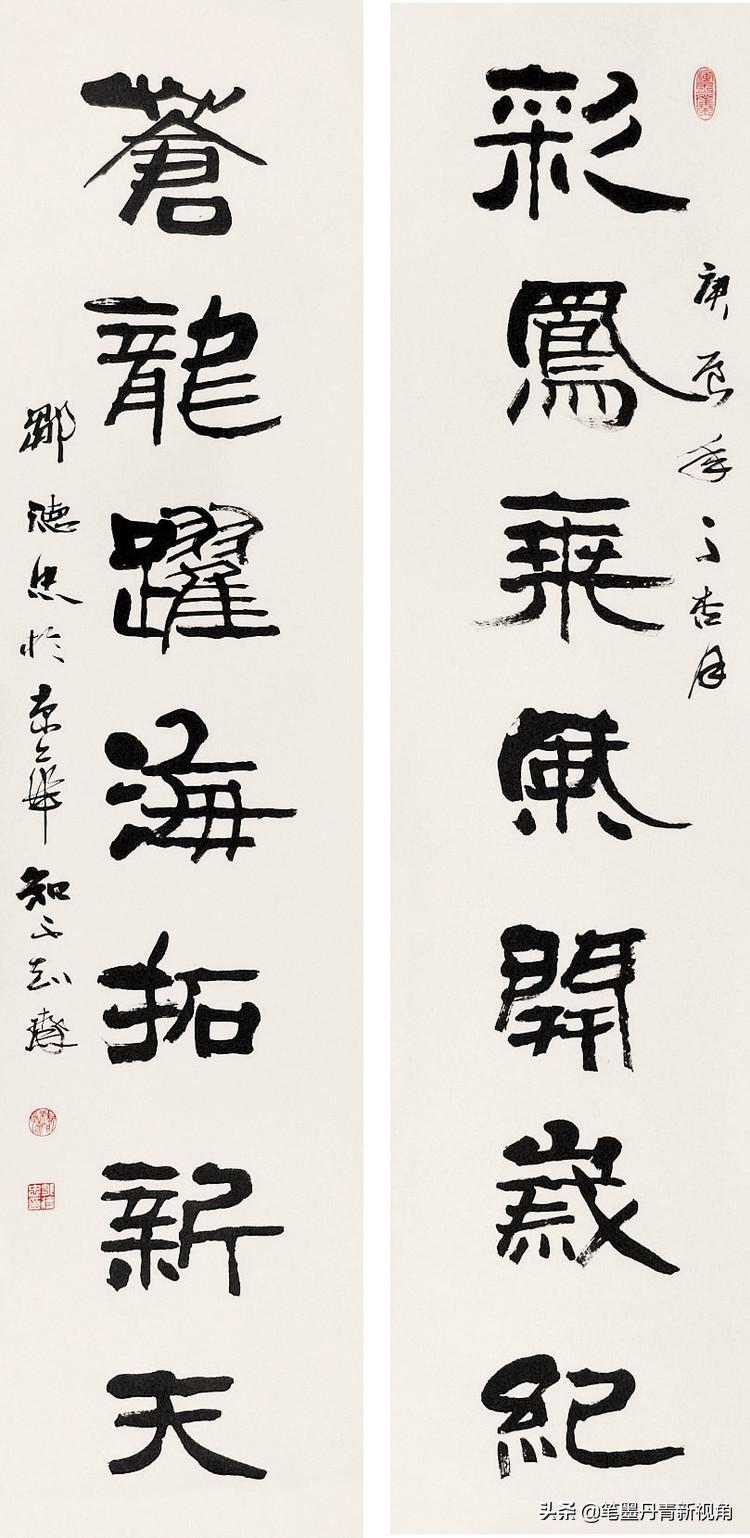 庚辰年之杏月
彩鳳乘風開歲紀
蒼龍躍海拓新天
鄒德忠於京華知不足齋
头条 @笔墨丹青新视角